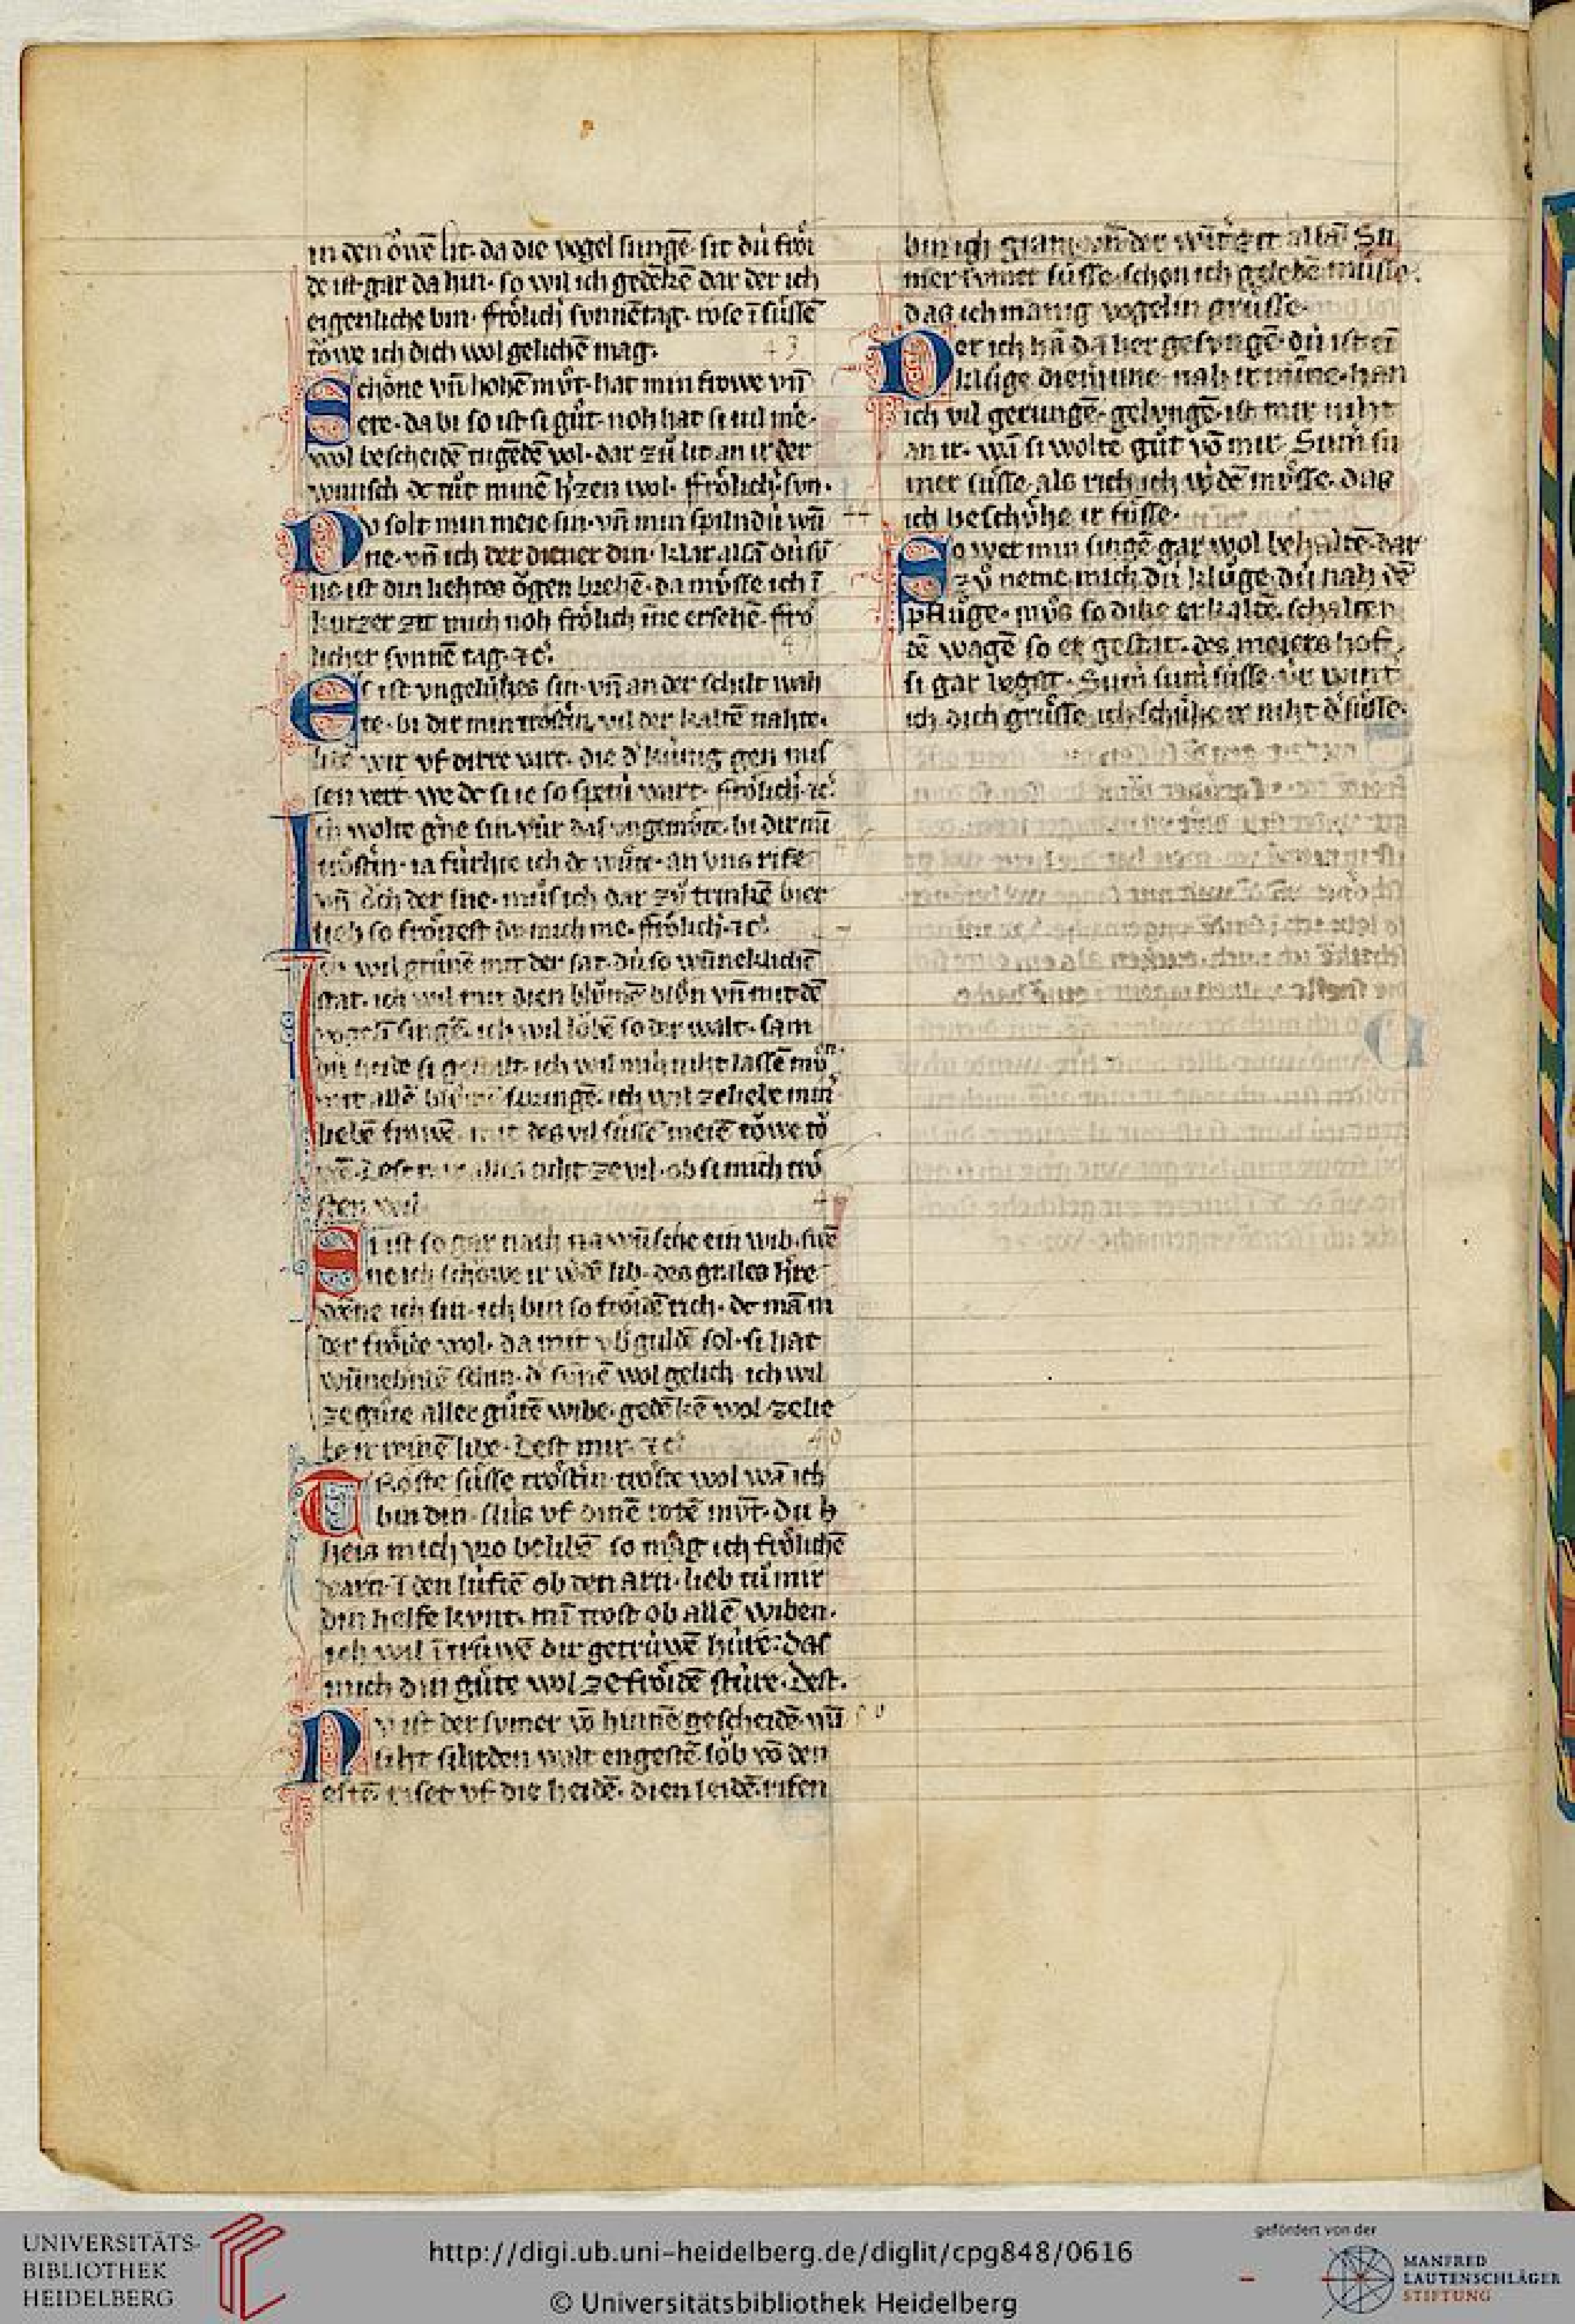 in den ǒwē lit · da die vogel sungē · sit dú frǒi
de ist gar da hin · so wil ich gedēkē dar der ich
eigenliche bin · frǒlich sunnētag · rose ī sússē
tǒwe ich dich wol gelichē mag · 43
Schǒne vn̄ hohē mv̊t · hat min frowe vn̄
ere · da bi so ist si gůt · noh hat si vil me ·
wol bescheidē tugēdē vol · dar zů lit an ir der
wunsch dc tůt minē h'zen wol · frǒlich' sun ·
Dv solt min meie sin · vn̄ min spilndú wū 44
ne · vn̄ ich der diener din · klar alsā dú sv̄
ne ist din liehtes ǒgen brehē · da mv̊sse ich ī
kurzer zit mich noh frǒlich ine ersehē · frǒ
licher sunnē tag · ⁊c'.
Es ist vngelúkes sin · vn̄ an der schilt wah
te · bi dir min trǒstin · vil der kaltē nahte ·
wir vf dirre vart · die d' kúnig gen mis
sen vert · we dc si ie so spetú wart · frǒlich · ⁊c'
Ich wolte g'ne sin · vúr das vngemv̊te · bi dir mī
trǒstin · ia fúrhte ich dc wůte · an vns rife
vn̄ ǒch der sne · můs ich dar zů trinkē bier
lieb so frǒwest du mich me · frǒlich · ⁊c'
Ich wil grůnē mit der sat · dú so wūneklichē
stat · ich wil mit dien blůmē blůn vn̄ mit dē
vogelī singē · ich wil lǒbē so der walt · sam
dú heide si gestalt · ich wil mih niht lassē mv̊n
mit allē blůmē springē · ich wil ze liebe min'
liebē frowē · mit des vil sússē meiē tǒwe tǒ
wē · Dest mir alles niht ze vil · ob si mich trǒ
sten wil
Si ist so gar nach wūsche ein wib · swē
ne ich schowe ir w'dē lib · des grales h're
wene ich sin · ich bin so frǒidē rich · dc mā in
der frǒide wol · da mit vb'guldē sol · si hat
wūnebernē schin · d' sunē wol gelich · ich wil
ze gůte aller gůtē wibe · gedēkē wol ze lie
be ir reinē libe · Dest mir · ⁊c'
Trǒste sússe trǒstin · trǒste wol wā ich
bin din · slús vf dinē rotē mv̄t · du h
heis mich vro belibē so mag ich frǒlichē
varn ī den lúftē ob den arn · lieb tů mir
din helfe kunt · mī trost ob allē wiben ·
ich wil ī trúwē dir getrúwē húte · das
mich din gůte wol ze frǒidē stúre · Dest ·
Nv ist der sumer vō hinnē gescheidē · wū 50
siht sih den walt engestē lǒb vō den
estē riset vf die heidē · dien leidē · rifen
bin ich gram · vn̄ der winter ist allā Su
mer sumer sússe · schon ich gelebē můsse ·
das ich mānig vogelin grůsse ·
Der ich hā da her gesungē · dú ist eī
klůge diernune · nah ir mine · han
ich vil gerungē · gelungē · ist mir niht
an ir · wā si wolte gůt vō mir · Sum su
mer sússe · als rich ich w'dē můsse · das
ich beschůhe ir fússe ·
So wer min singē gar wol behaltē · dar
zů neme mich dú klůge · dú nah dē
pflůge · mv̊s so dike erkaltē · schalten
dē wagē so er gestat · des meiers hof
si gar beget · Sum sum sússe · vúr wint
ich dich grůsse · ich schúhe ir niht d' fússe ·
UNIVERSITÄTS-
BIBLIOTHEK
HEIDELBERG
http://digi.ub.uni-heidelberg.de/diglit/cpg848/0616
© Universitätsbibliothek Heidelberg
gefördert von der
MANFRED
LAUTENSCHLÄGER
STIFTUNG